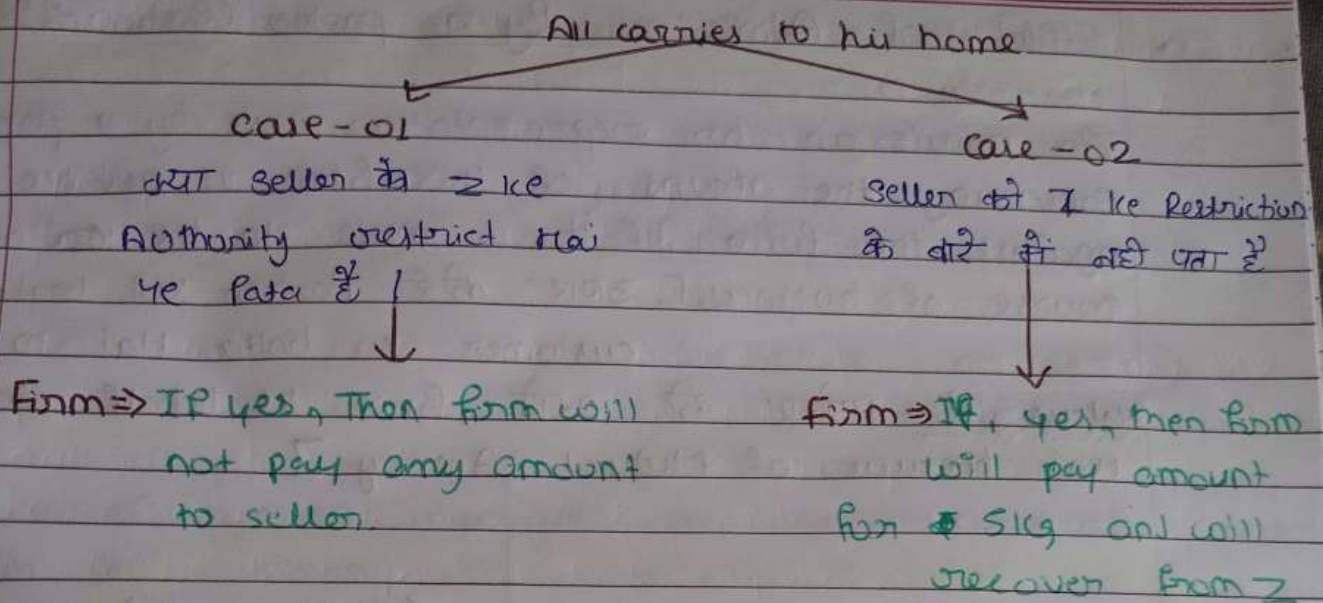 All carries to his home
Case-01
क्या seller को Z ke
Authority restrict hai
ye Pata है।
Firm⇒ If yes, Then firm will
not pay any amount
to seller.
Case-02
seller को Z ke Restriction
के बारे में नही पता है
Firm⇒ If, yes, then firm
will pay amount
for 5kg and will
recover from Z